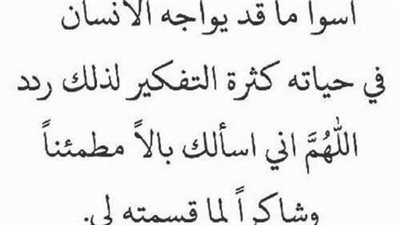 اسوأ ما قد يواجه الانسان
في حياته كثرة التفكير لذلك ردد
اللهُمَّ اني اسألك بالاً مطمئناً
وشاكراً لما قسمته لي.